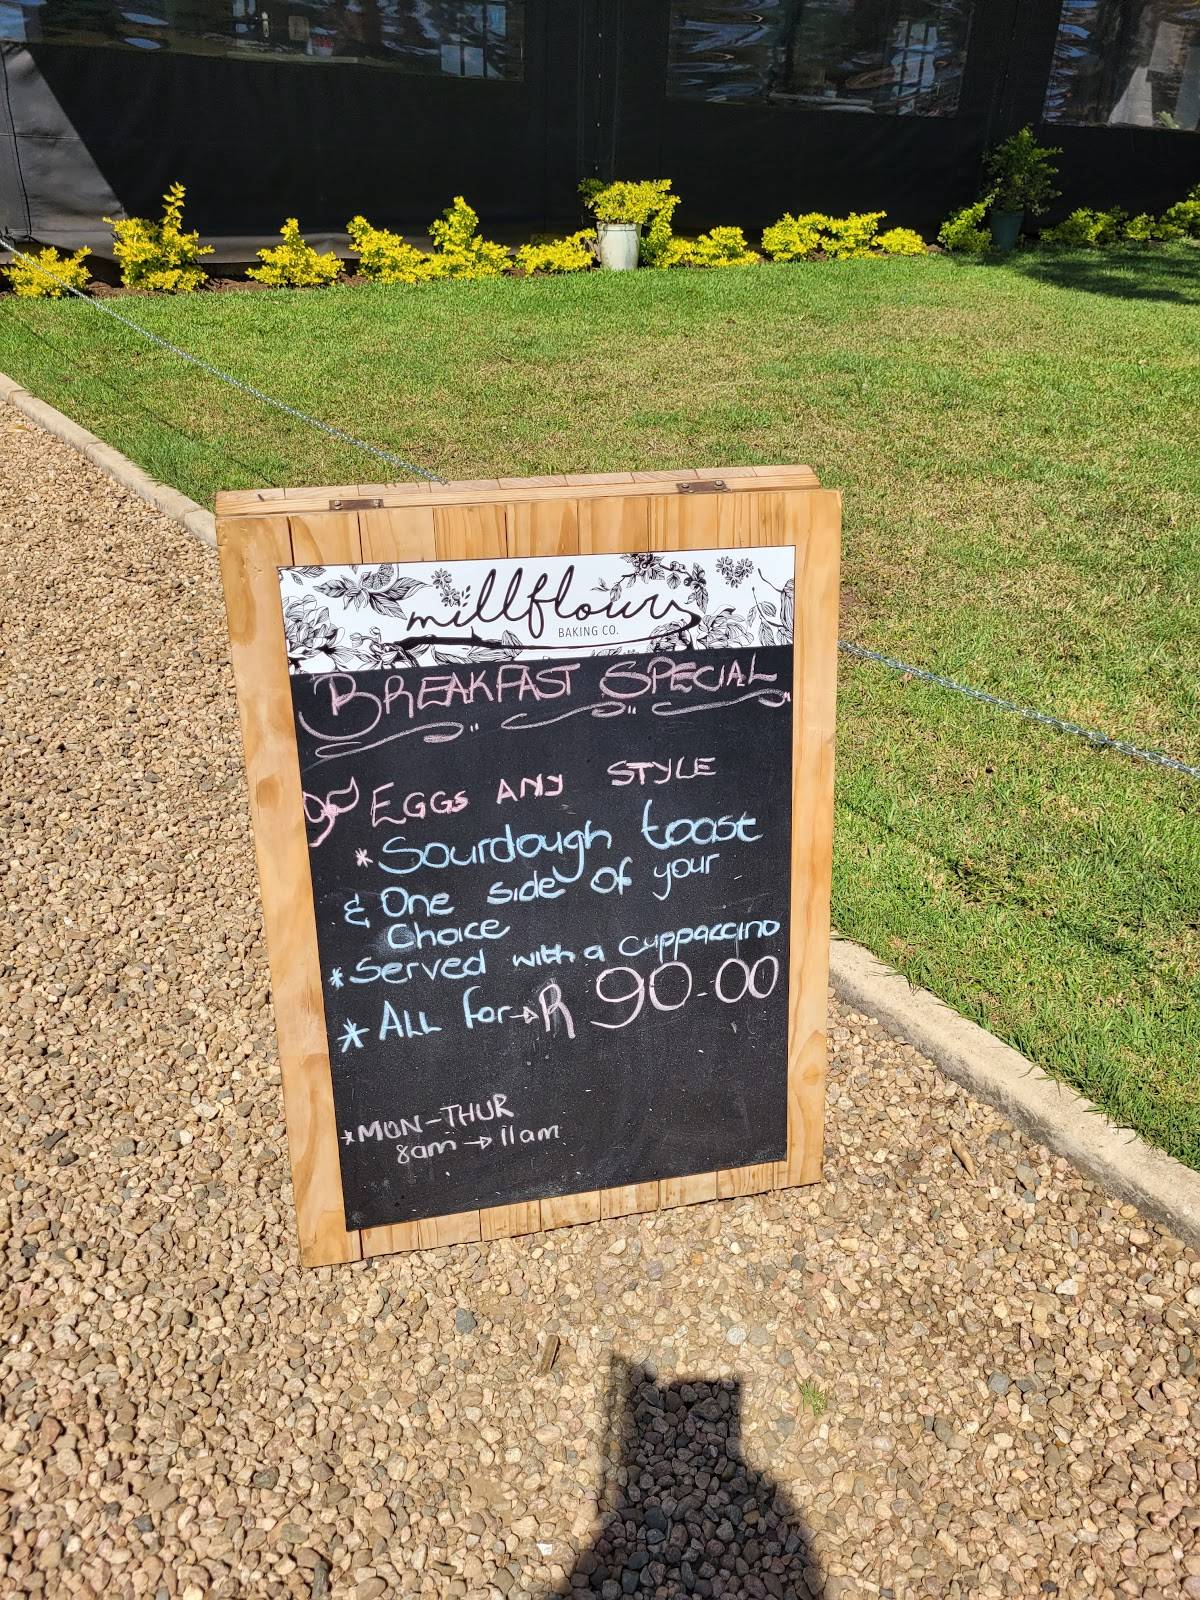 millflour
BAKING CO.
BREAKFAST SPECIAL
EGGS ANY STYLE
* Sourdough toast
& One side of your
Choice
* Served with a cuppaccino
* ALL for → R 90.00
* MON-THUR
8am → 11am